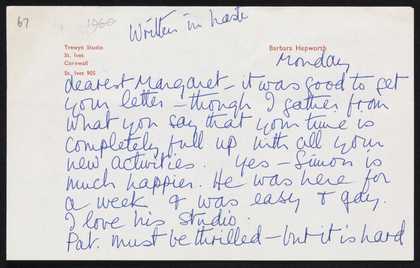 67
1960
Written in haste
Trewyn Studio
St. Ives
Cornwall
St. Ives 905
Barbara Hepworth
Monday
dearest Margaret – it was good to get
your letter – though I gather from
what you say that your time is
completely full up with all your
new activities. Yes – Simon is
much happier. He was here for
a week & was easy & gay.
I love his studio.
Pat. must be thrilled – but it is hard